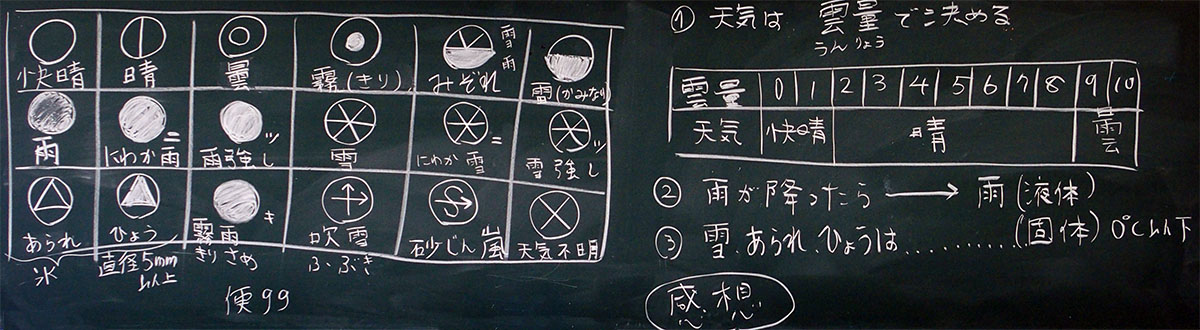 快晴 晴 曇 霧(きり) みぞれ 雪 雨 雷(かみなり)
雨 にわか雨 ニ 雨強し ツ 雪 にわか雪 ニ 雪強し ツ
あられ ひょう 霧雨 キ 吹雪 砂じん嵐 天気不明
氷 直径5mm以上 きりさめ ふぶき
便99
① 天気は 雲量で決める
うんりょう
雲量 0 1 2 3 4 5 6 7 8 9 10
天気 快晴 晴 曇
② 雨が降ったら → 雨(液体)
③ 雪、あられ、ひょうは………(固体)0℃以下
感想